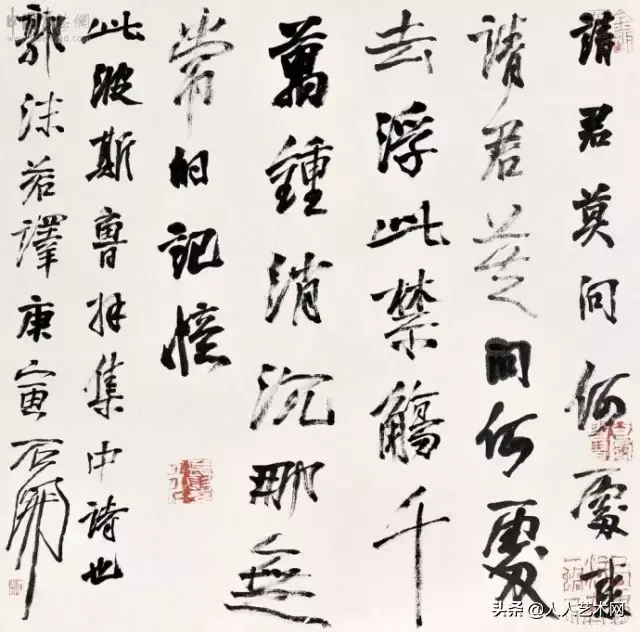 請君莫問何處來
請君莫問何處
去浮此禁觴千
萬鍾消沉那無
常的記憶
此波斯魯拜集中詩也
郭沫若譯庚寅石開
头条 @人人艺术网